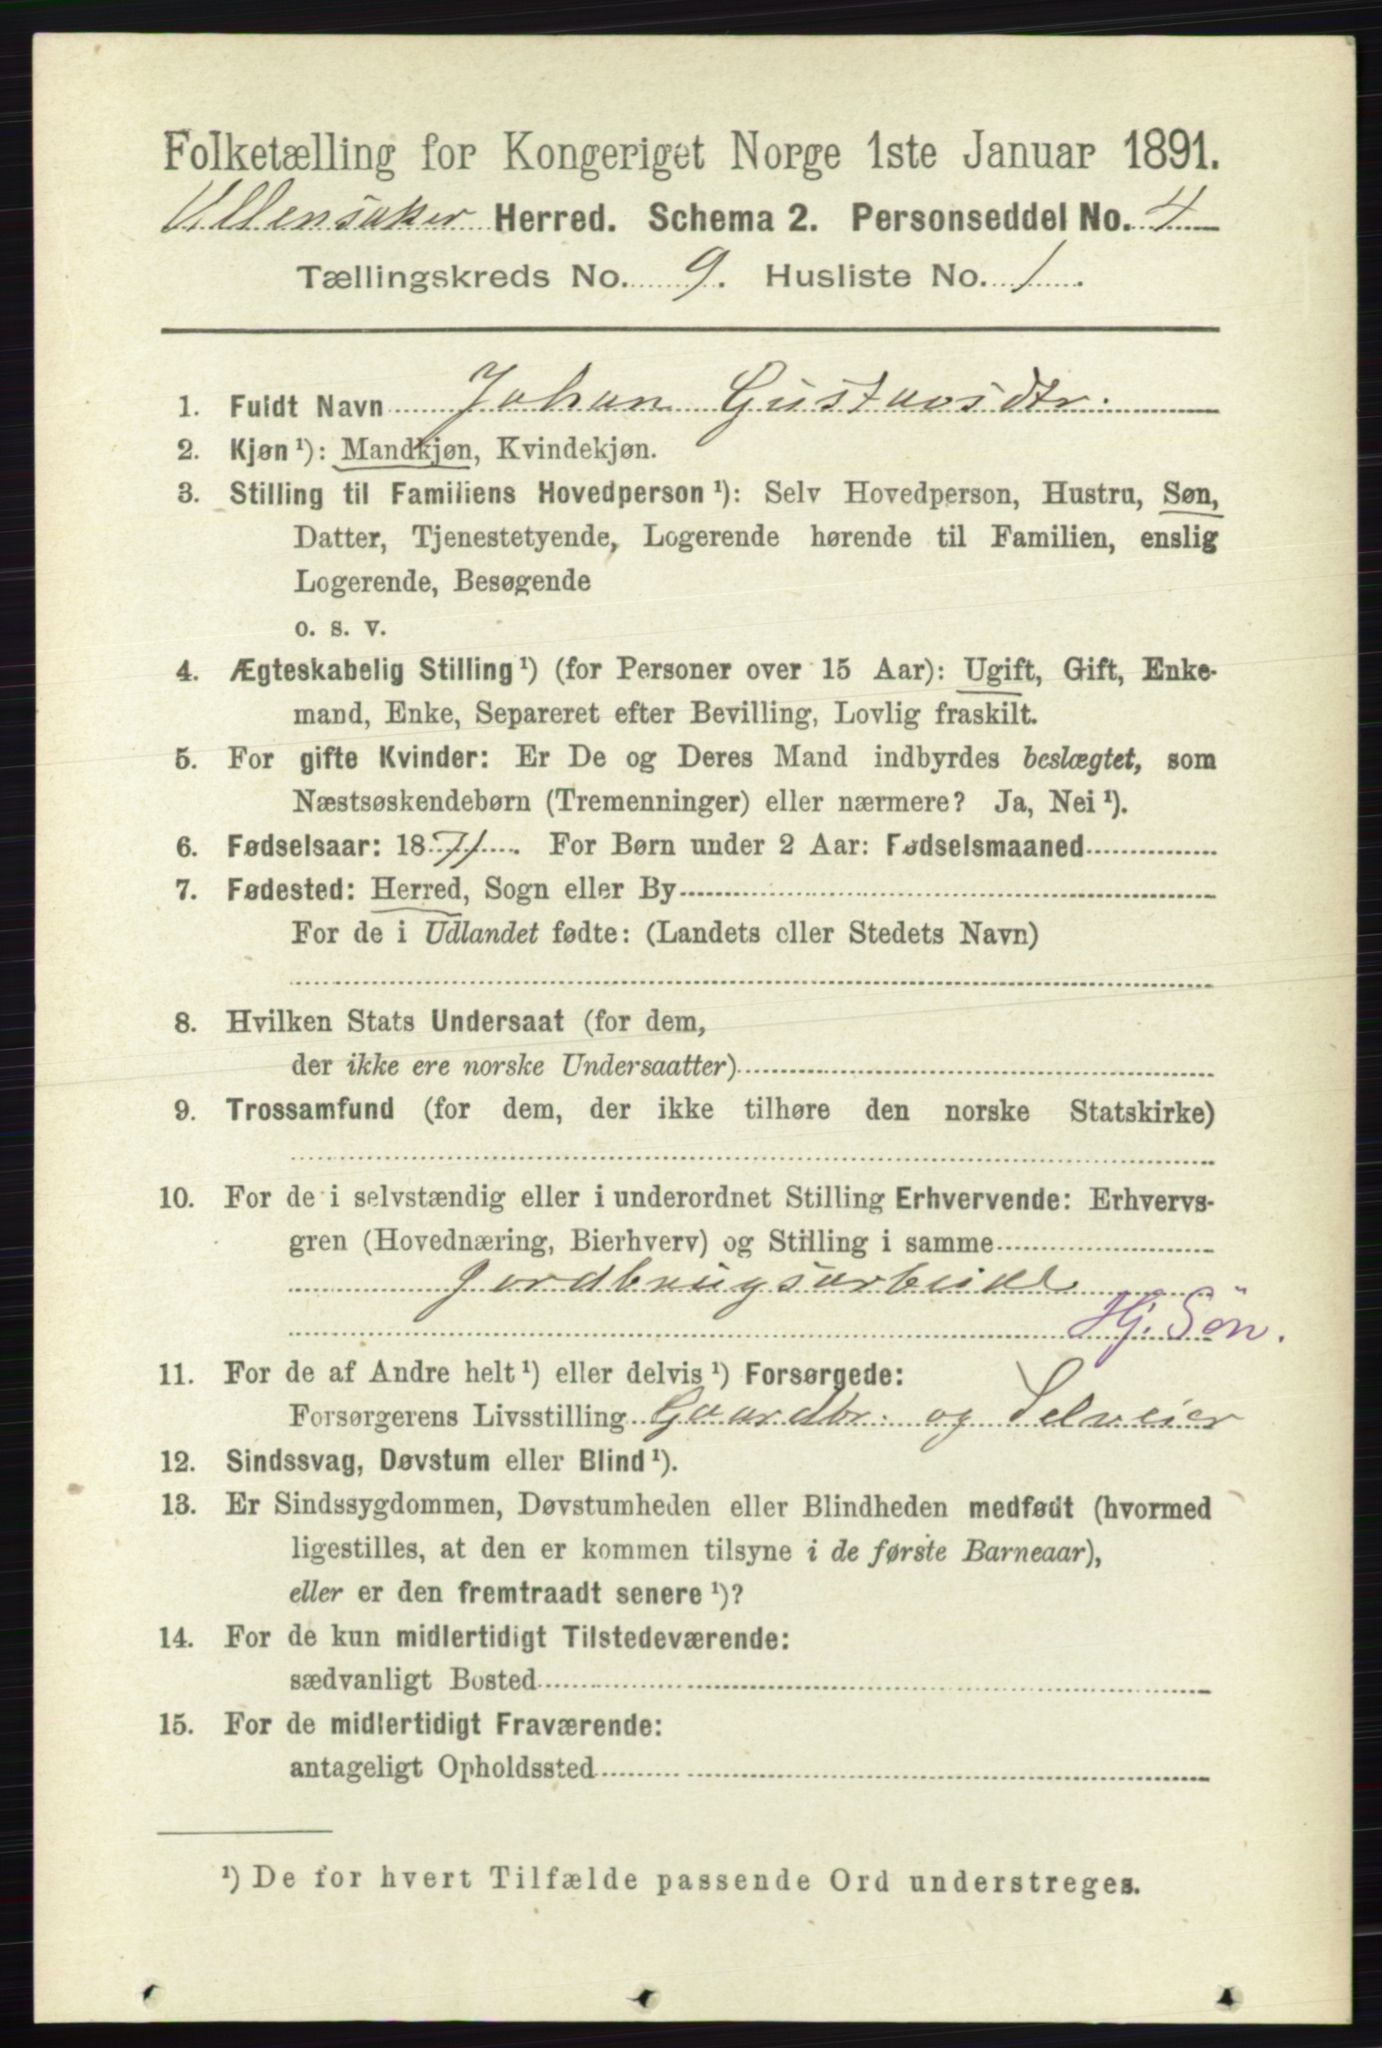 Folketælling for Kongeriget Norge 1ste Januar 1891.
Ullensaker Herred. Schema 2. Personseddel No. 4
Tællingskreds No. 9. Husliste No. 1.
1. Fuldt Navn Johan Gustavsdtr.
2. Kjøn ¹): Mandkjøn, Kvindekjøn.
3. Stilling til Familiens Hovedperson ¹): Selv Hovedperson, Hustru, Søn,
Datter, Tjenestetyende, Logerende hørende til Familien, enslig
Logerende, Besøgende
o. s. v.
4. Ægteskabelig Stilling ¹) (for Personer over 15 Aar): Ugift, Gift, Enke-
mand, Enke, Separeret efter Bevilling, Lovlig fraskilt.
5. For gifte Kvinder: Er De og Deres Mand indbyrdes beslægtet, som
Næstsøskendebørn (Tremenninger) eller nærmere? Ja, Nei ¹).
6. Fødselsaar: 1871. For Børn under 2 Aar: Fødselsmaaned
7. Fødested: Herred, Sogn eller By
For de i Udlandet fødte: (Landets eller Stedets Navn)
8. Hvilken Stats Undersaat (for dem,
der ikke ere norske Undersaatter)
9. Trossamfund (for dem, der ikke tilhøre den norske Statskirke)
10. For de i selvstændig eller i underordnet Stilling Erhvervende: Erhvervs-
gren (Hovednæring, Bierhverv) og Stilling i samme
Jordbrugsarbeide
Hj. Søn.
11. For de af Andre helt ¹) eller delvis ¹) Forsørgede:
Forsørgerens Livsstilling Gaardbr. og Selveier
12. Sindssvag, Døvstum eller Blind ¹).
13. Er Sindssygdommen, Døvstumheden eller Blindheden medfødt (hvormed
ligestilles, at den er kommen tilsyne i de første Barneaar),
eller er den fremtraadt senere ¹)?
14. For de kun midlertidigt Tilstedeværende:
sædvanligt Bosted
15. For de midlertidigt Fraværende:
antageligt Opholdssted
¹) De for hvert Tilfælde passende Ord understreges.